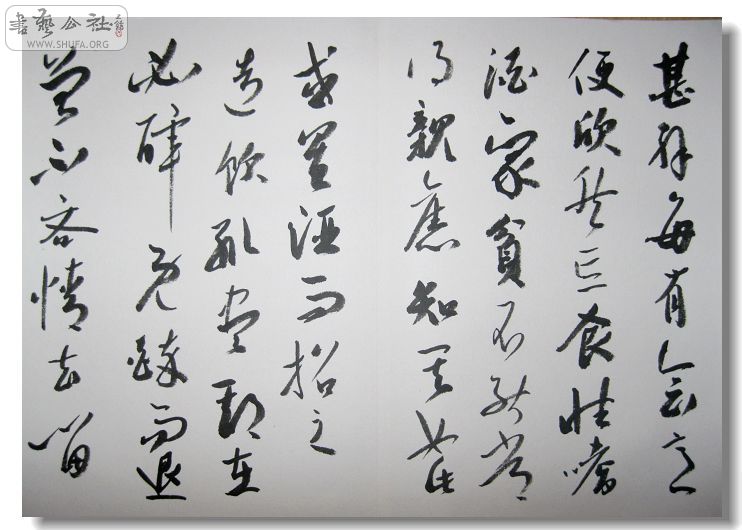 甚解每有会意
便欣然忘食性嗜
酒家貧不能常
得親舊知其如此
或置酒而招之
造飲輒盡期在
必醉既醉而退
曾不吝情去留
書藝公社
WWW.SHUFA.ORG